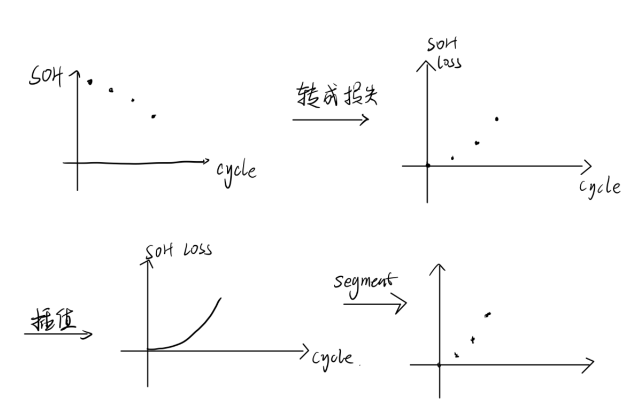 SOH
cycle
转成损失
SOH
loss
cycle
插值
SOH LOSS
cycle.
segment